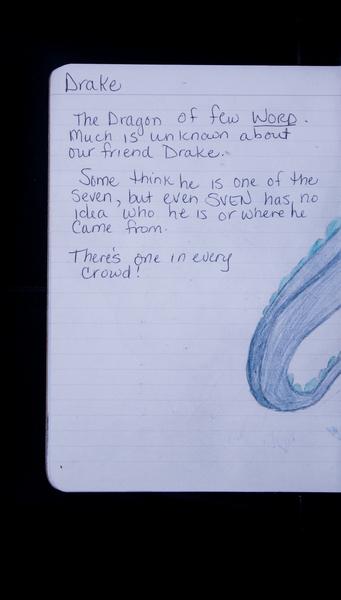 Drake
The Dragon of few WORD.
Much is unknown about
our friend Drake.
Some think he is one of the
Seven, but even SVEN has no
idea who he is or where he
came from.
There's one in every
crowd!